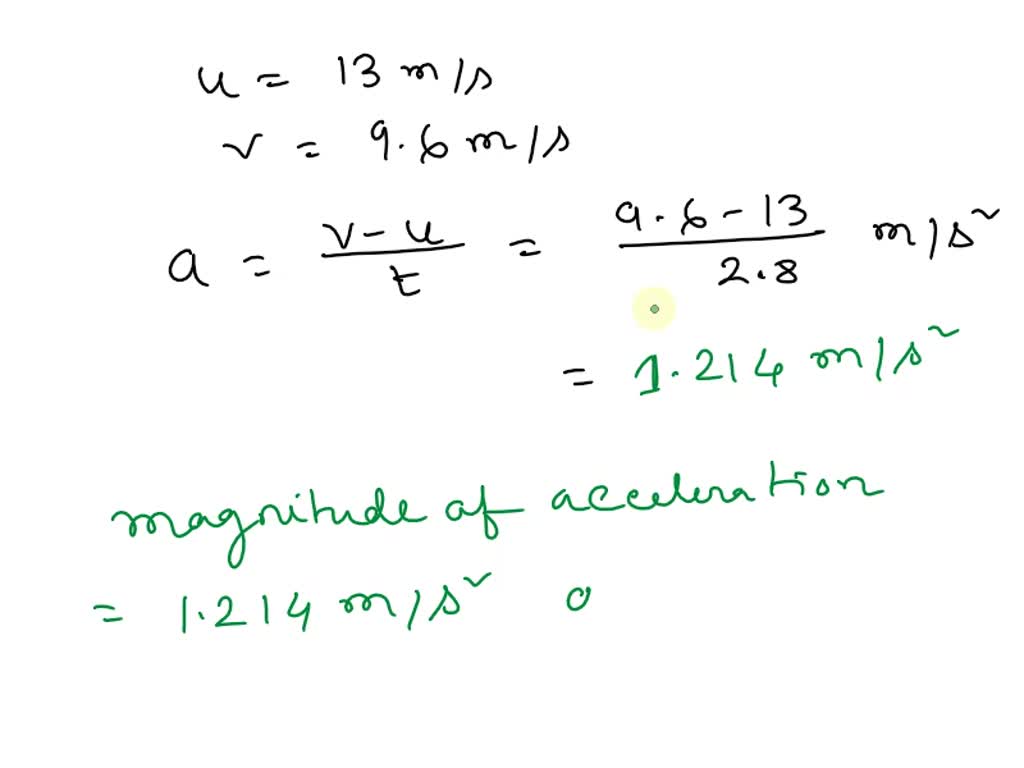 u = 13 m/s
v = 9.6 m/s
a = v-u / t = 9.6-13 / 2.8 m/s²
= 1.214 m/s²
magnitude of acceleration
= 1.214 m/s² o